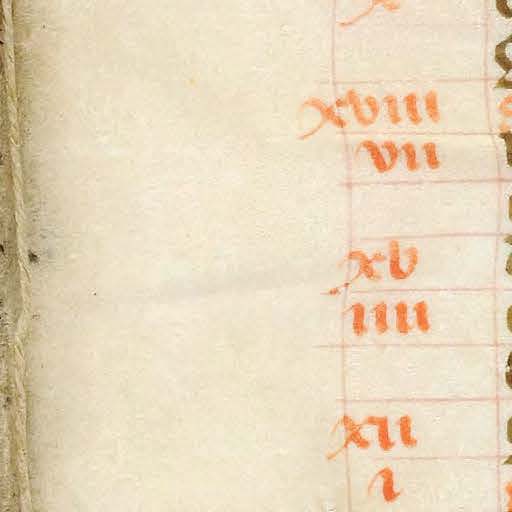 x
xviii
vii
xv
iiii
xii
i